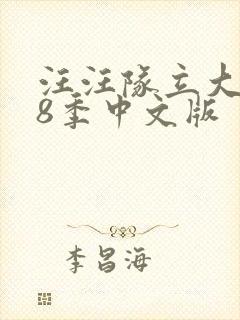 汪汪隊立大
8季中文版
李昌海